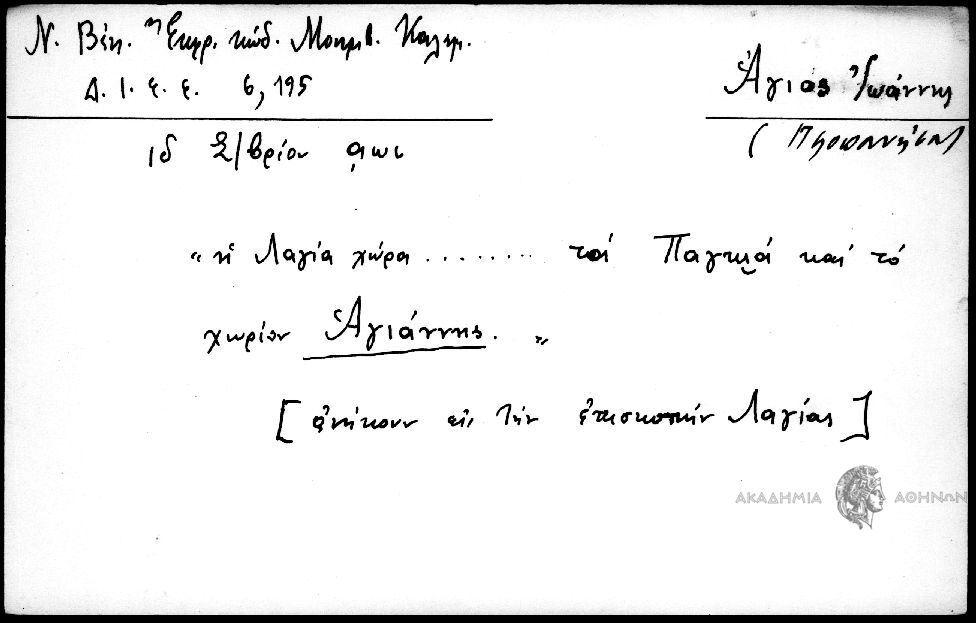 Ν. Βέη. Ἔκφρ. κώδ. Μονεμβ. Καλαμ.
Δ. Ι. Ε. Ε. 6, 195
Ἅγιος Ἰωάννης
ιδ 8/βρίου αωι
" ἡ Λαγία χώρα ......... τὰ Παγκιά καὶ τὸ
χωρίον Ἁγιάννης. "
[ ἀνήκουν εἰς τὴν ἐπισκοπὴν Λαγίας ]
ΑΚΑΔΗΜΙΑ ΑΘΗΝΩΝ